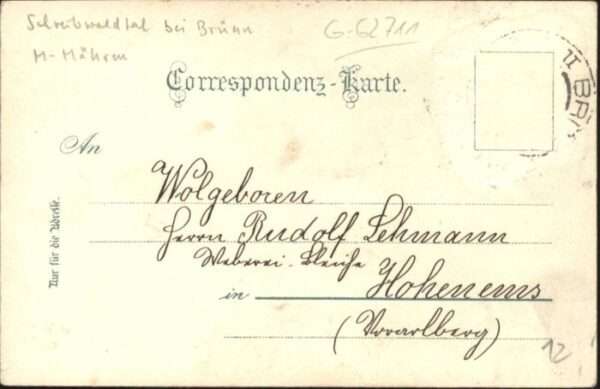 Schreibwaldtal bei Brünn
M-Mähren
G-62711
Correspondenz-Karte.
II BR
An
Nur für die Adresse.
Wolgeboren
Herrn Rudolf Lehmann
Weberei-Bleiche
in Hohenems
(Vorarlberg)
12